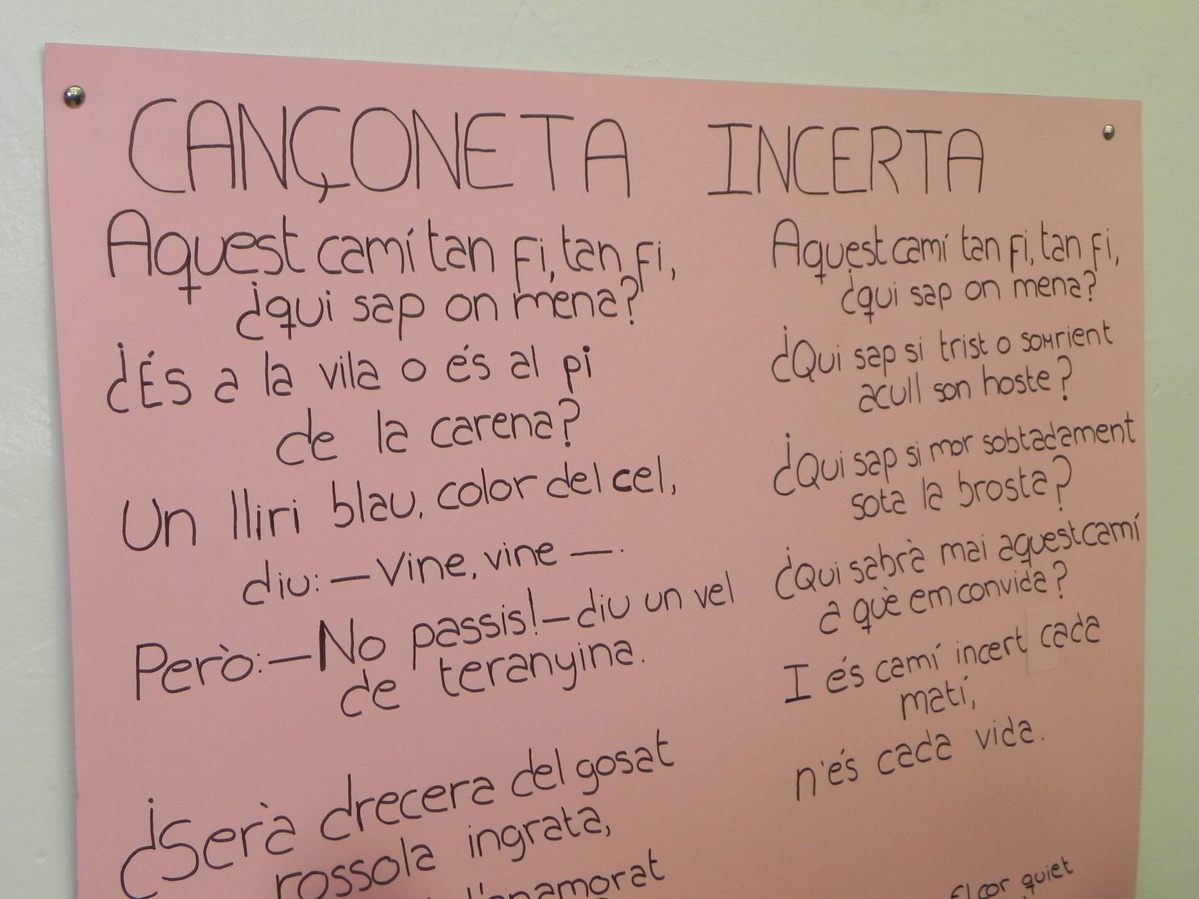 CANÇONETA INCERTA
Aquest camí tan fi, tan fi,
¿qui sap on mena?
¿És a la vila o és al pi
de la carena?
Un lliri blau, color del cel,
diu: — Vine, vine —.
Però: — No passis! — diu un vel
de teranyina.
¿Serà drecera del gosat
rossola ingrata,
l'enamorat
Aquest camí tan fi, tan fi,
¿qui sap on mena?
¿Qui sap si trist o somrient
acull son hoste?
¿Qui sap si mor sobtadament
sota la brosta?
¿Qui sabrà mai aquest camí
a què em convida?
I és camí incert cada
matí,
n'és cada vida.
El cor quiet